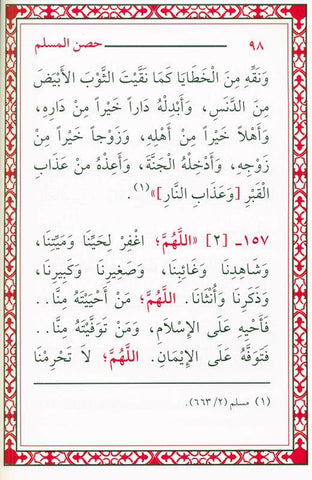 ٩٨ حصن المسلم
وَنَقِّهِ مِنَ الْخَطَايَا كَمَا نَقَّيْتَ الثَّوْبَ الأَبْيَضَ
مِنَ الدَّنَسِ، وَأَبْدِلْهُ دَاراً خَيْراً مِنْ دَارِهِ،
وَأَهْلاً خَيْراً مِنْ أَهْلِهِ، وَزَوْجاً خَيْراً مِنْ
زَوْجِهِ، وَأَدْخِلْهُ الْجَنَّةَ، وَأَعِذْهُ مِنْ عَذَابِ
الْقَبْرِ [وَعَذَابِ النَّارِ]»(١).
١٥٧ـ [٢] «اللَّهُمَّ؛ اغْفِرْ لِحَيِّنَا وَمَيِّتِنَا،
وَشَاهِدِنَا وَغَائِبِنَا، وَصَغِيرِنَا وَكَبِيرِنَا،
وَذَكَرِنَا وَأُنْثَانَا. اللَّهُمَّ؛ مَنْ أَحْيَيْتَهُ مِنَّا..
فَأَحْيِهِ عَلَى الإِسْلاَمِ، وَمَنْ تَوَفَّيْتَهُ مِنَّا..
فَتَوَفَّهُ عَلَى الإِيْمَانِ. اللَّهُمَّ؛ لاَ تَحْرِمْنَا
(١) مسلم (٢/ ٦٦٣).